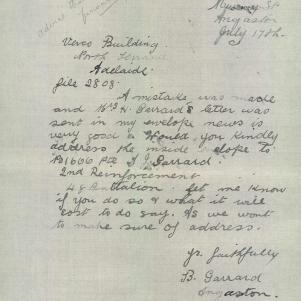 Murray St
Angaston
July 17th.
Verco Building
North Terrace
Adelaide.
File 2808.
A mistake was made
and Mrs H Garrard's letter was
sent in my envelope news is
very good. Would you kindly
address the inside envelope to
Pte S J Garrard.
2nd Reinforcement
48 Battalion. let me know
if you do so & what it will
cost to do say. As we want
to make sure of address.
yr faithfully
B. Garrard
Angaston.